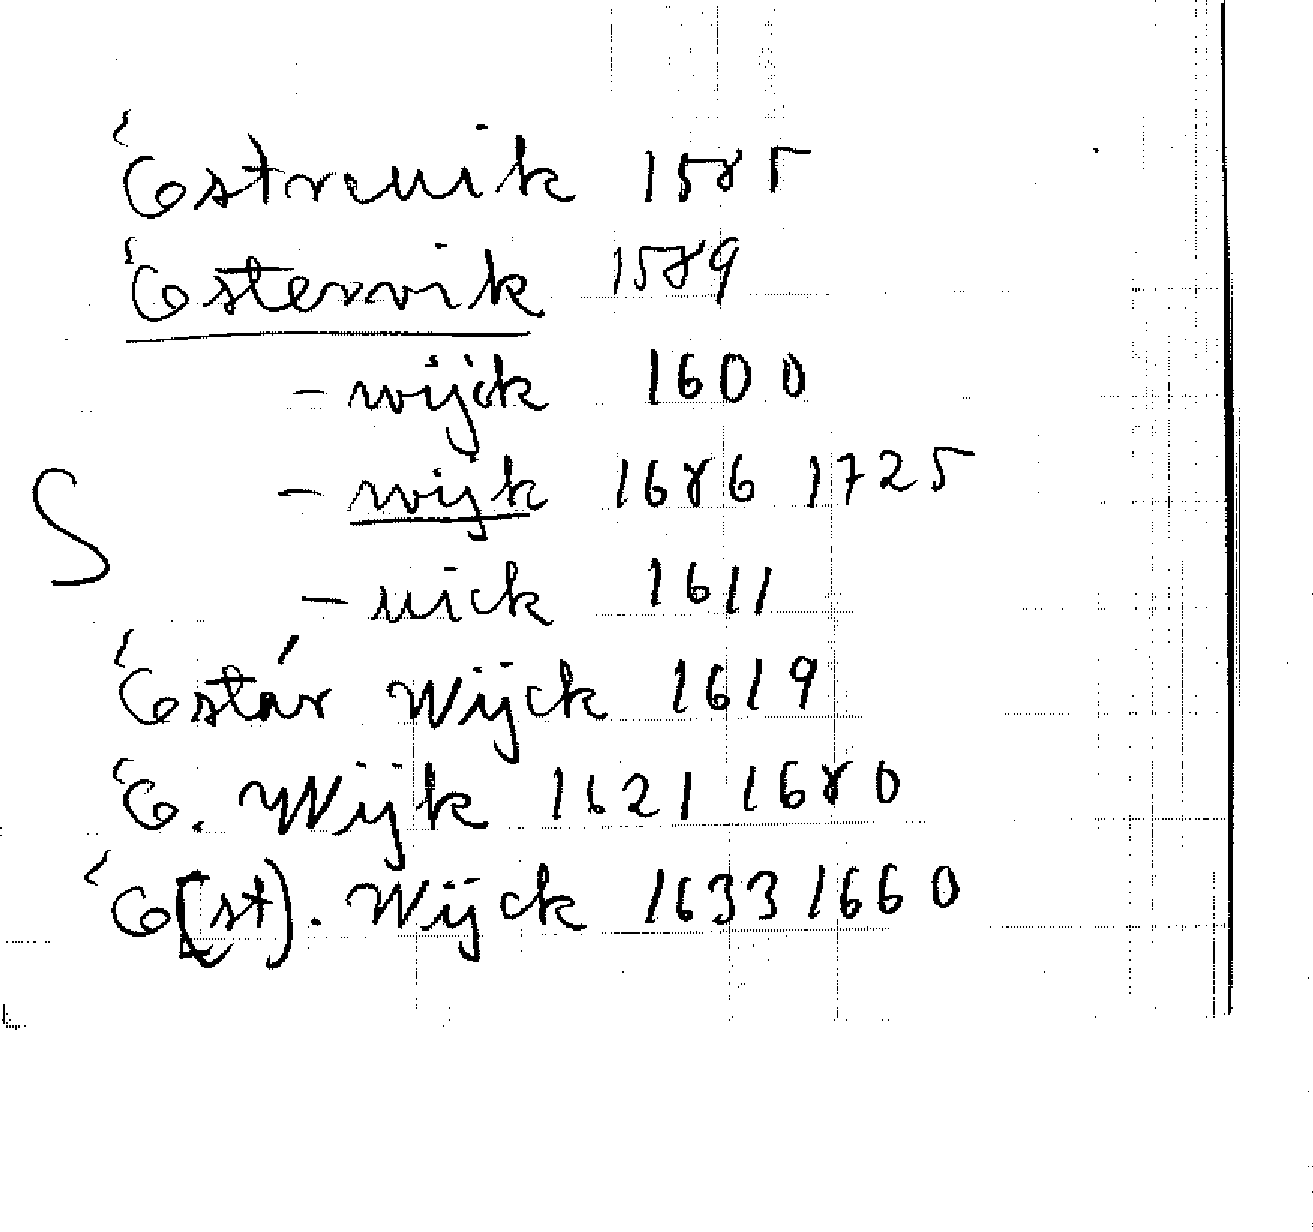 Östreuik 1585
Östervik 1589
-wijck 1600
S -wijk 1686 1725
-uick 1611
Östär Wijck 1619
Ö. Wijk 1621 1680
Ö(st). Wijck 1633 1660